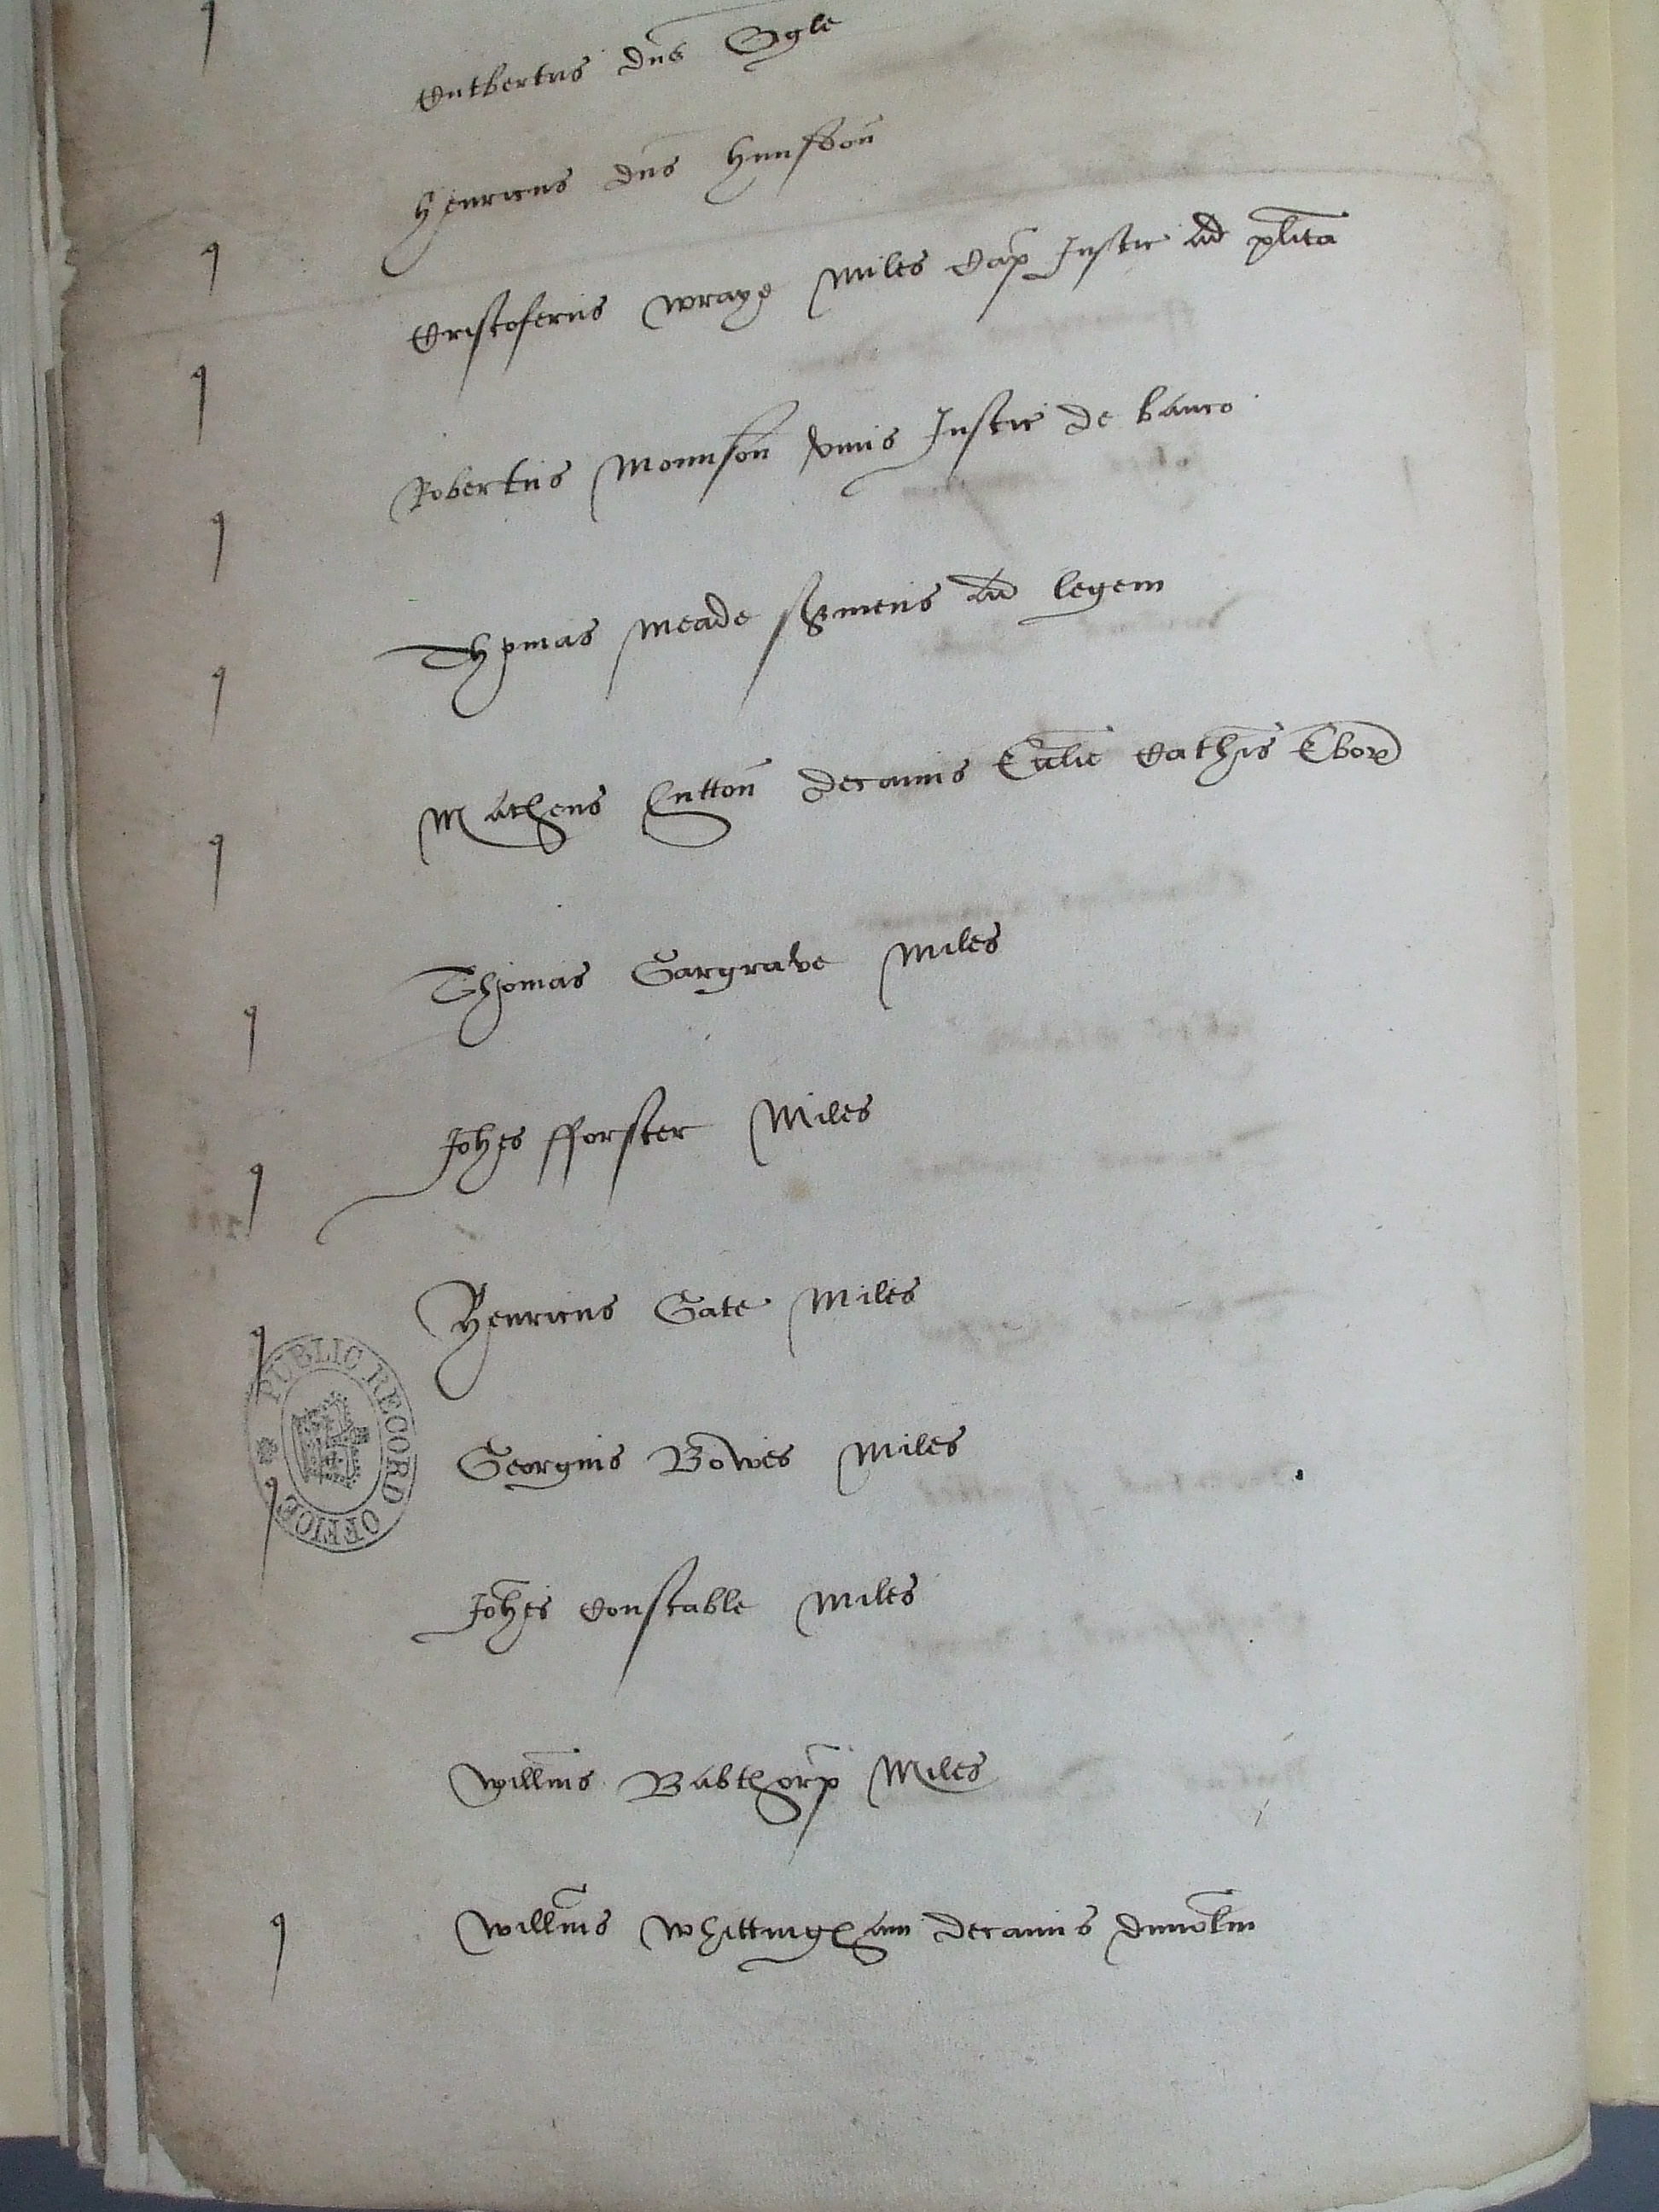 Cutbertus dns Ogle
Henricus dns Hunsdon
Cristoferus Wraye Miles Cap Justic ad plita
Robertus Mounson unus Justic de banco
Thomas Meade s'viens ad legem
Matheus Hutton decanus Eccl'ie Cathis Ebor
Thomas Gargrave Miles
Johes fforster Miles
Henricus Gate Miles
Georgius Bowes Miles
PUBLIC RECORD OFFICE
Johes Constable Miles
Willms Babthorp Miles
Willms Whittingham decanus Dunolm